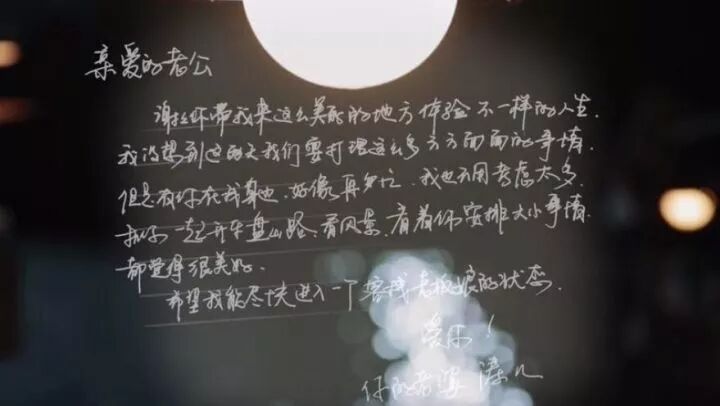 亲爱的老公
谢谢你带我来这么美丽的地方体验不一样的人生.
我没想到这两天我们要打理这么多方方面面的事情.
但是有你在我身边,好像再多忙,我也不用考虑太多.
和你一起开车盘山路、看风景,看着你安排大小事情.
都觉得很美好.
希望我能尽快进入一下客栈老板娘的状态.
爱你!
你的老婆